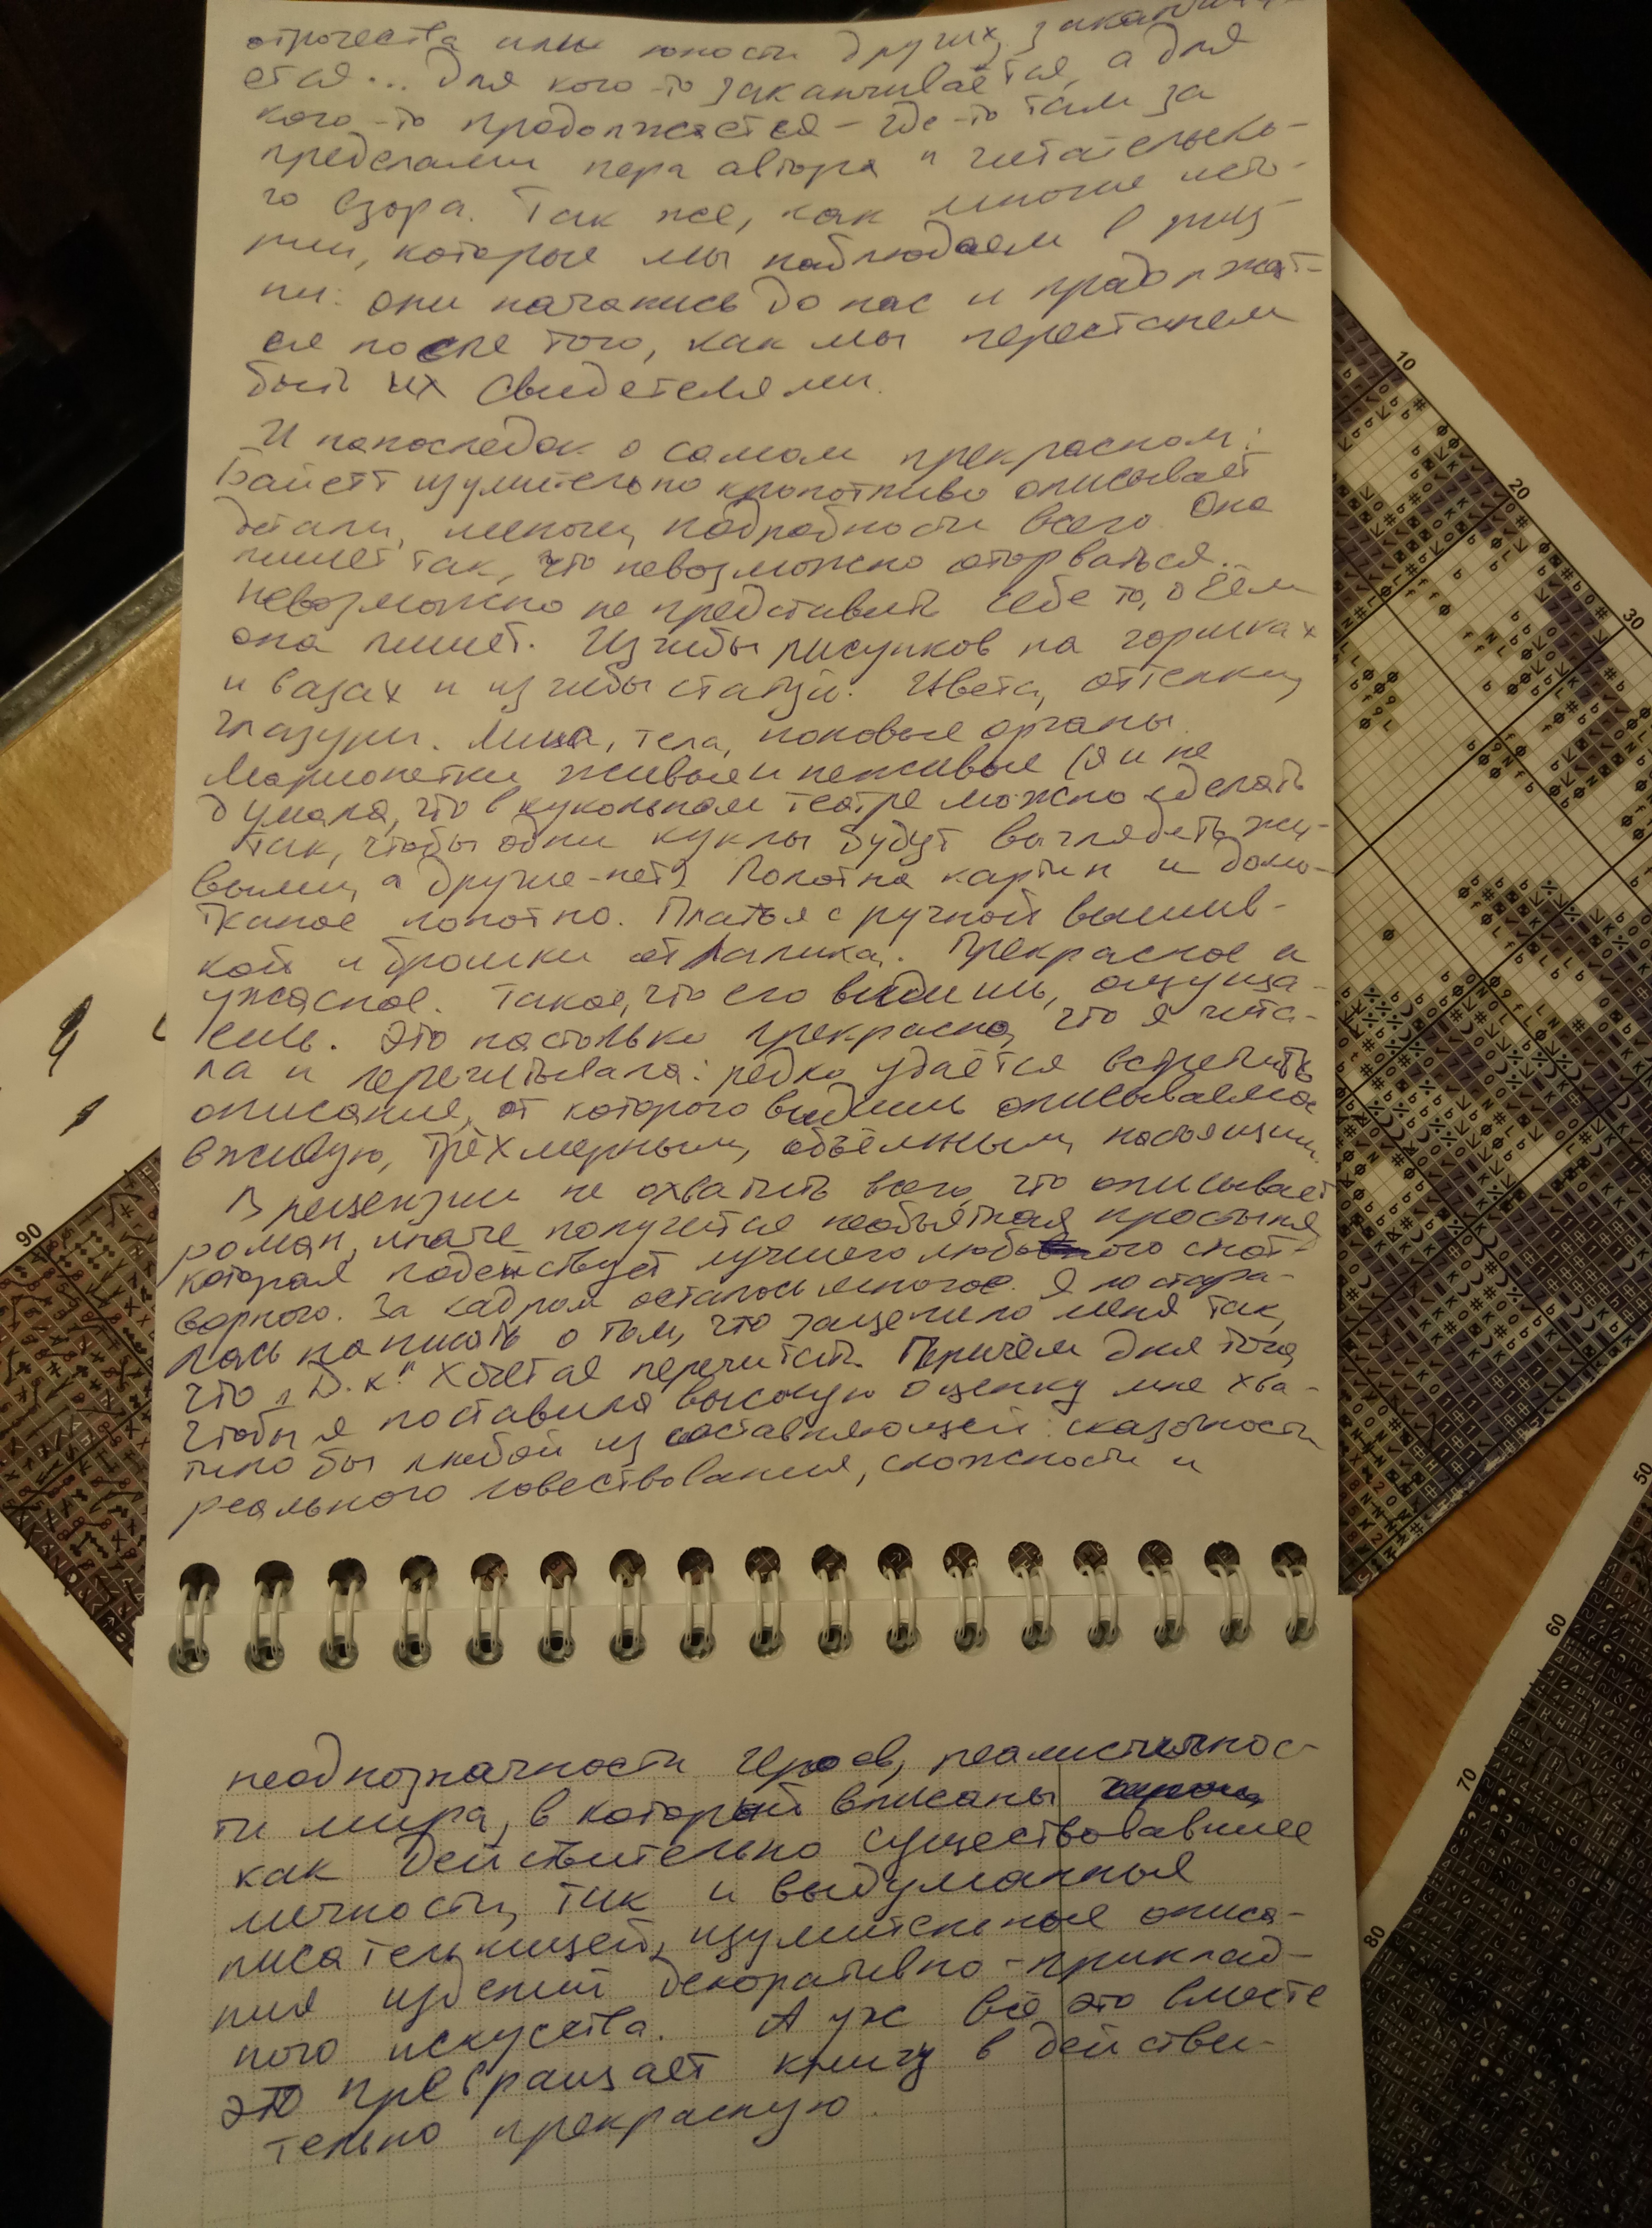 отрочества или юности других, заканчива-
ется... Для кого-то заканчивается, а для
кого-то продолжается – где-то там за
пределами пера автора и читательско-
го взора. Так же, как многие исто-
рии, которые мы наблюдаем в жиз-
ни: они начались до нас и продолжат-
ся после того, как мы перестанем
быть их свидетелями.
И напоследок о самом прекрасном:
Байетт изумительно кропотливо описывает
детали, мелочи, подробности всего. Она
пишет так, что невозможно оторваться.
Невозможно не представить себе то, о чём
она пишет. Изгибы рисунков на горшках
и вазах и изгибы статуй. Цвета, оттенки,
глазури. Лица, тела, половые органы.
Марионетки живые и неживые (я и не
думала, что в кукольном театре можно сделать
так, чтобы одни куклы будут выглядеть жи-
выми, а другие – нет). Полотна картин и домо-
тканое полотно. Платья с ручной вышив-
кой и брошки от Лалика. Прекрасное и
ужасное. Такое, что его видишь, ощуща-
ешь. Это настолько прекрасно, что я чита-
ла и перечитывала: редко удаётся встретить
описание, от которого видишь описываемое
вживую, трёхмерным, объёмным, настоящим.
В рецензии не охватить всего, что описывает
роман, иначе получится необъятная простыня,
которая подействует лучше любого снот-
ворного. За кадром осталось многое. Я постара-
лась написать о том, что зацепило меня так,
что „Д.к." хочется перечитать. Причём для того,
чтобы я поставила высокую оценку мне хва-
тило бы любой из составляющей: сказочности
реального повествования, сложности и
неоднозначности героев, реалистичнос-
ти мира, в который вписаны
как действительно существовавшие
личности, так и выдуманные
писательницей, изумительные описа-
ния изделий декоративно-приклад-
ного искусства. А уж всё это вместе
это превращает книгу в действи-
тельно прекрасную.
10
20
30
50
60
70
80
90